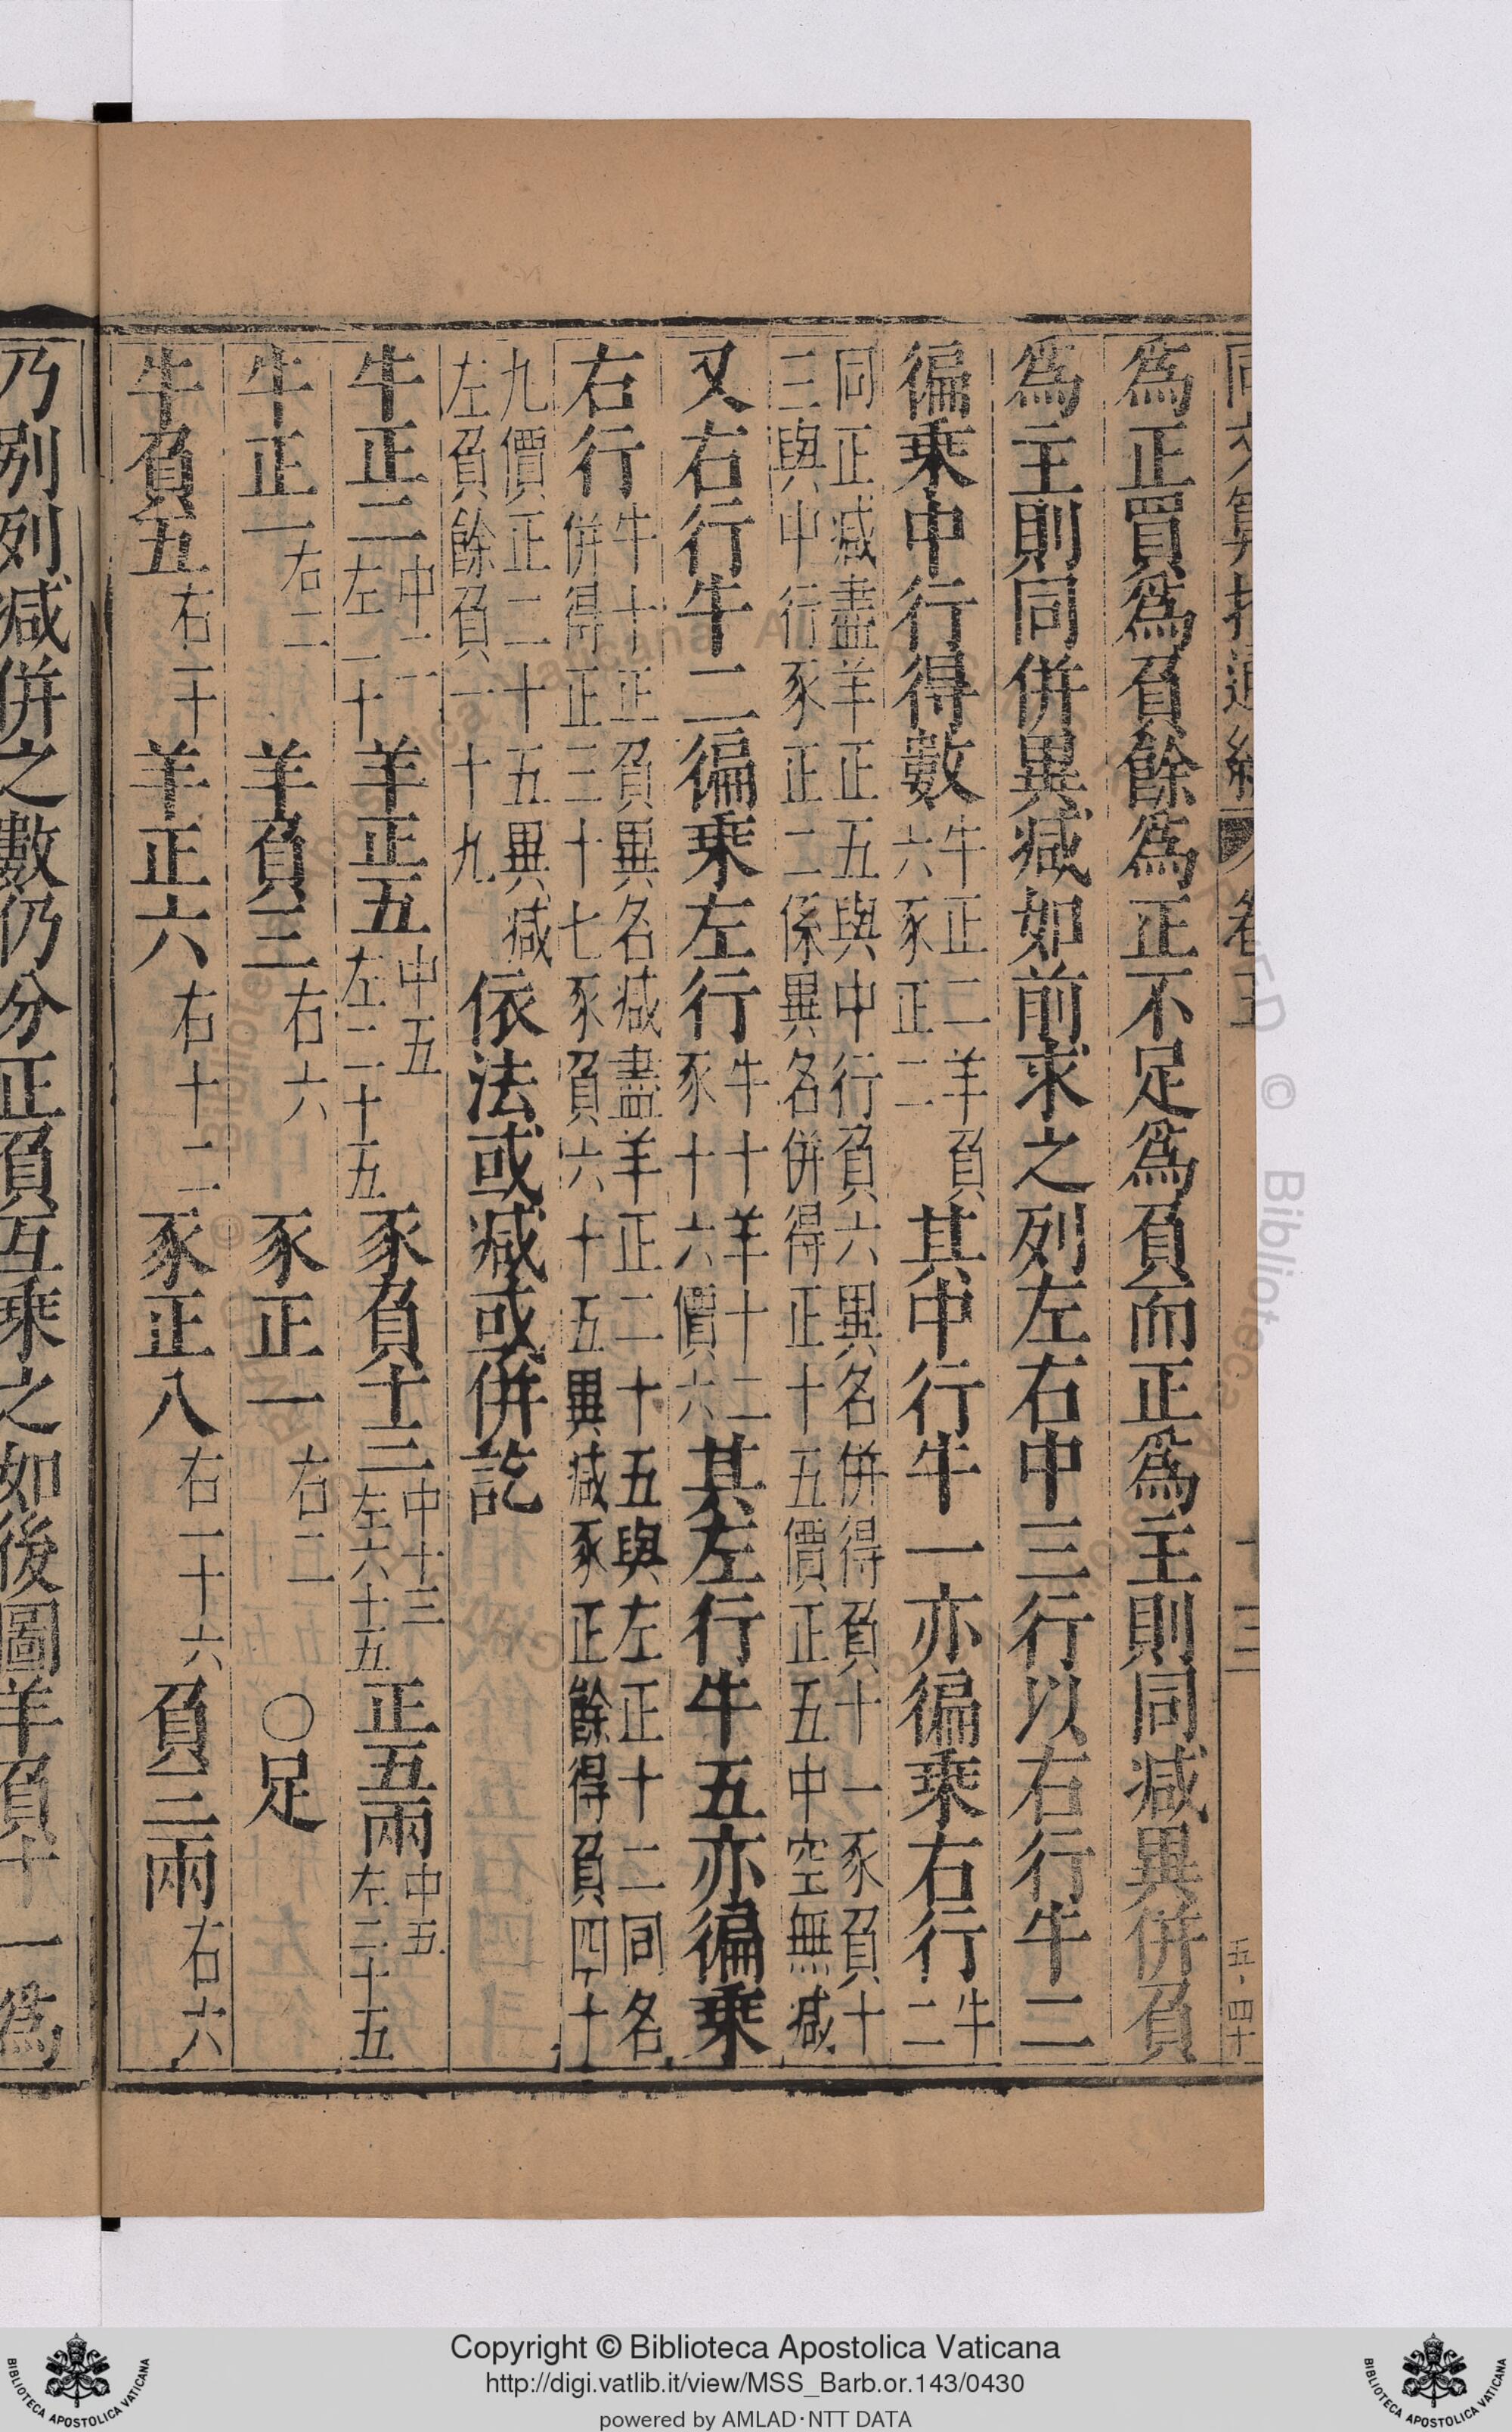 為正買為負餘為正不足為負而正為主則同减異併負
為主則同併異减如前求之列左右中三行以右行牛二
徧乗中行得數牛正二羊負六豕正二其中行牛一亦徧乗右行牛二
同正减盡羊正五與中行負六異名併得負十一豕負十
三與中行豕正二係異名併得正十五價正五中空無减
又右行牛二徧乗左行牛十羊十二豕十六價六其左行牛五亦徧乗
右行牛十正負異名减盡羊正二十五與左正十二同名
併得正三十七豕負六十五異减豕正餘得負四十
九價正二十五異减
左負餘負一十九
依法或减或併訖
牛正二中二左一十羊正五中五左二十五豕負十三中十三左六十五正五兩中五左二十五
牛正一右二羊負三右六豕正一右二〇足
牛負五右一十羊正六右十二豕正八右一十六負三兩右六
乃别列减併之數仍分正負互乗之如後圖羊負十一為
五四十
Copyright © Biblioteca Apostolica Vaticana
http://digi.vatlib.it/view/MSS_Barb.or.143/0430
powered by AMLAD·NTT DATA
BIBLIOTECA APOSTOLICA VATICANA
BIBLIOTECA APOSTOLICA VATICANA